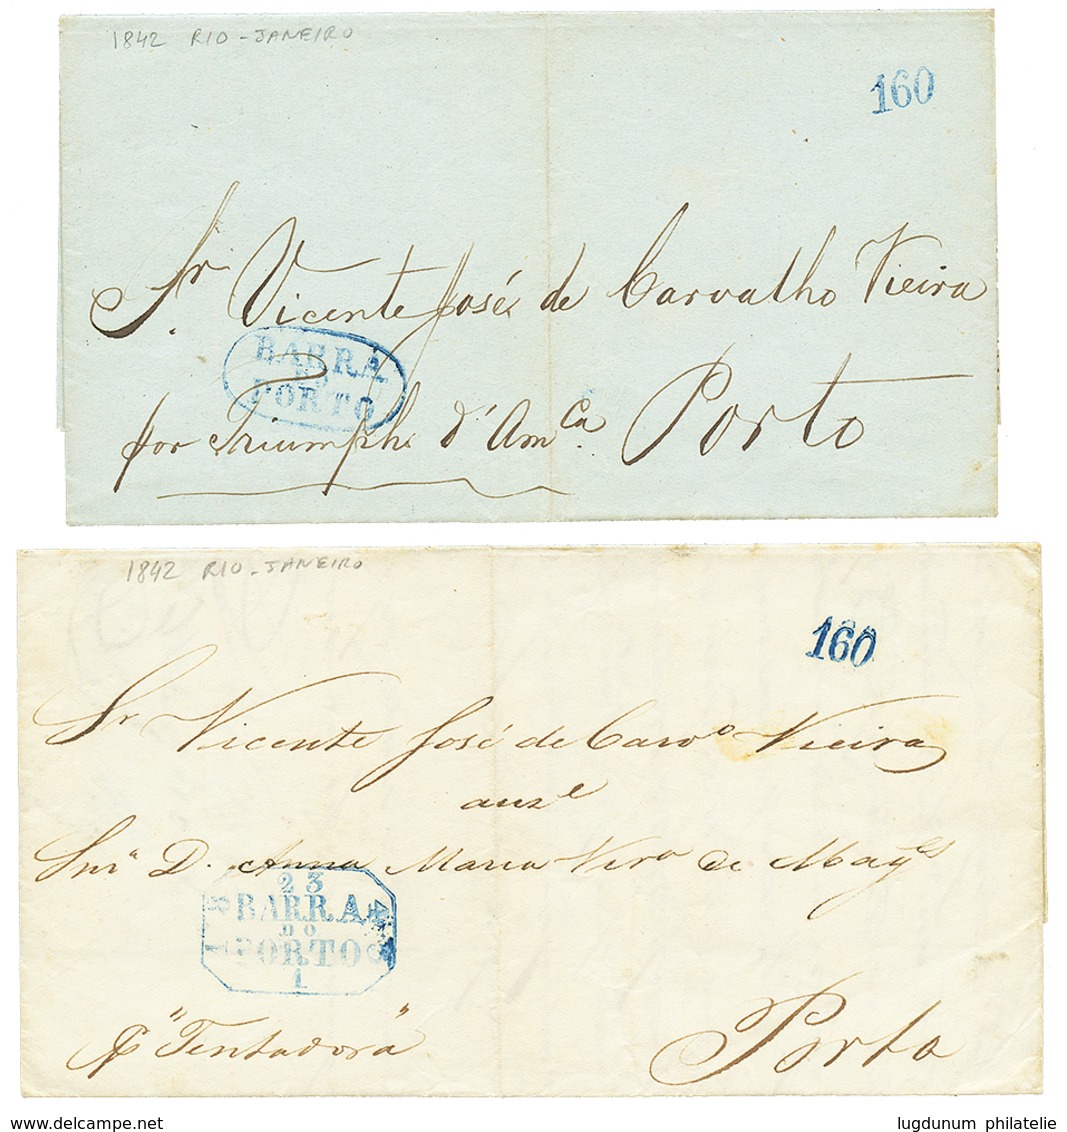 1842 RIO-JANEIRO
160
Sr. Vicente José de Carvalho Vieira
BARRA
DO
PORTO
por Triumph d'Amca. Porto
1842 RIO-JANEIRO
160
Sr. Vicente José de Carvo Vieira
auze
Snra D. Anna Maria Vira de Mages
23
18 BARRA 42
DO
PORTO
1
P "Tentadora"
Porto
www.delcampe.net
lugdunum philatelie